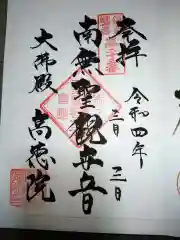 奉拝
令和四年
三月三日
南無聖観世音
大佛殿
高徳院